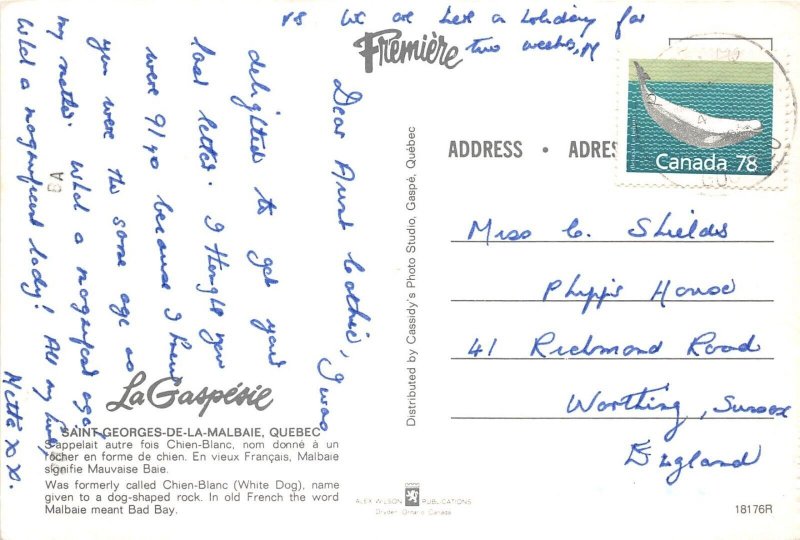 PS We are here on holiday for
two weeks, M
Première
Dear Aunt Cathie, I was
delighted to get your
last letter. I thought you
were 91 yo because I knew
you were the same age as
my mother. What a magnificent age,
What a magnificent lady! All my love,
Metta x x x.
La Gaspésie
SAINT-GEORGES-DE-LA-MALBAIE, QUEBEC
S'appelait autre fois Chien-Blanc, nom donné à un
rocher en forme de chien. En vieux Français, Malbaie
signifie Mauvaise Baie.
Was formerly called Chien-Blanc (White Dog), name
given to a dog-shaped rock. In old French the word
Malbaie meant Bad Bay.
Distributed by Cassidy's Photo Studio, Gaspé, Québec
ALEX WILSON PUBLICATIONS
Dryden, Ontario, Canada
Canada 78
ADDRESS • ADRES
Miss C. Shields
Phipp's House
41 Richmond Road
Worthing, Sussex
England
18176R